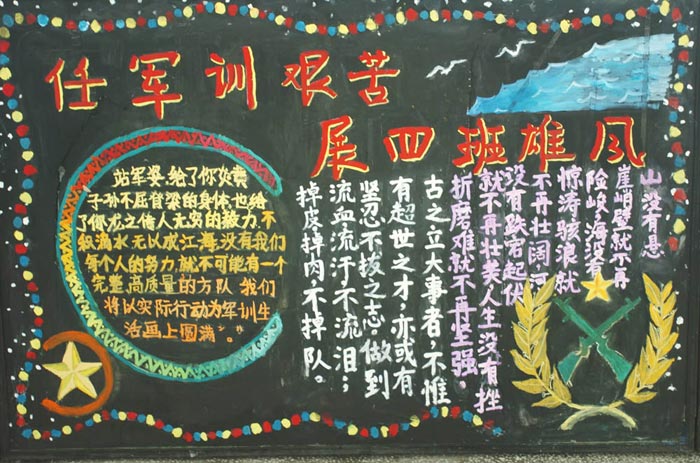 任军训艰苦
展四班雄风
站军姿,给了你炎黄
子孙不屈脊梁的身体也给
了你龙之传人无穷的毅力.不
积滴水无以成江海.没有我们
每个人的努力.就不可能有一个
完整,高质量的方队.我们
将以实际行动为军训生
活画上圆满"。"
山没有悬
崖峭壁就不再
险峻,海没有
惊涛骇浪就
不再壮阔,河
没有跌宕起伏
就不再壮美人生没有挫
折磨难就不再坚强。
古之立大事者,不惟
有超世之才,亦或有
坚忍不拔之志做到
流血流汗,不流泪;
掉皮掉肉,不掉队。